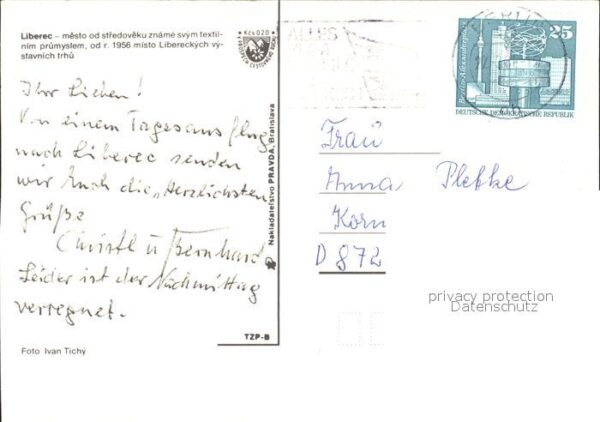 Liberec – město od středověku známé svým textil-
ním průmyslem, od r. 1956 místo Libereckých vý-
stavních trhů
Kčs 020
Ihr Lieben!
Von einem Tagesausflug
nach Liberec senden
wir Euch die „Herzlichsten
Grüße
Christl u Bernhard
Leider ist der Nachmittag
verregnet.
Foto Ivan Tichý
TZP-B
Nakladatelstvo PRAVDA, Bratislava
25
Berlin-Alexanderplatz
DEUTSCHE DEMOKRATISCHE REPUBLIK
Frau
Anna Plefke
Korn
D 872
privacy protection
Datenschutz